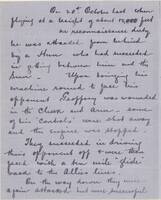 On 20th October last when
flying at a height of about 12,000 feet
on reconnaissance duty,
he was attacked from behind
by a Hun who had succeeded
in getting between him and the
Sun. Upon turning his
machine round to face his
opponent Gaffney was wounded
in the chest and arm - some
of his "controls" were shot away
and the engine was stopped.
They succeeded in driving
their opponent off & were then
faced with a ten mile "glide"
back to the Allies lines.
On the way down they were
again attacked but were successful